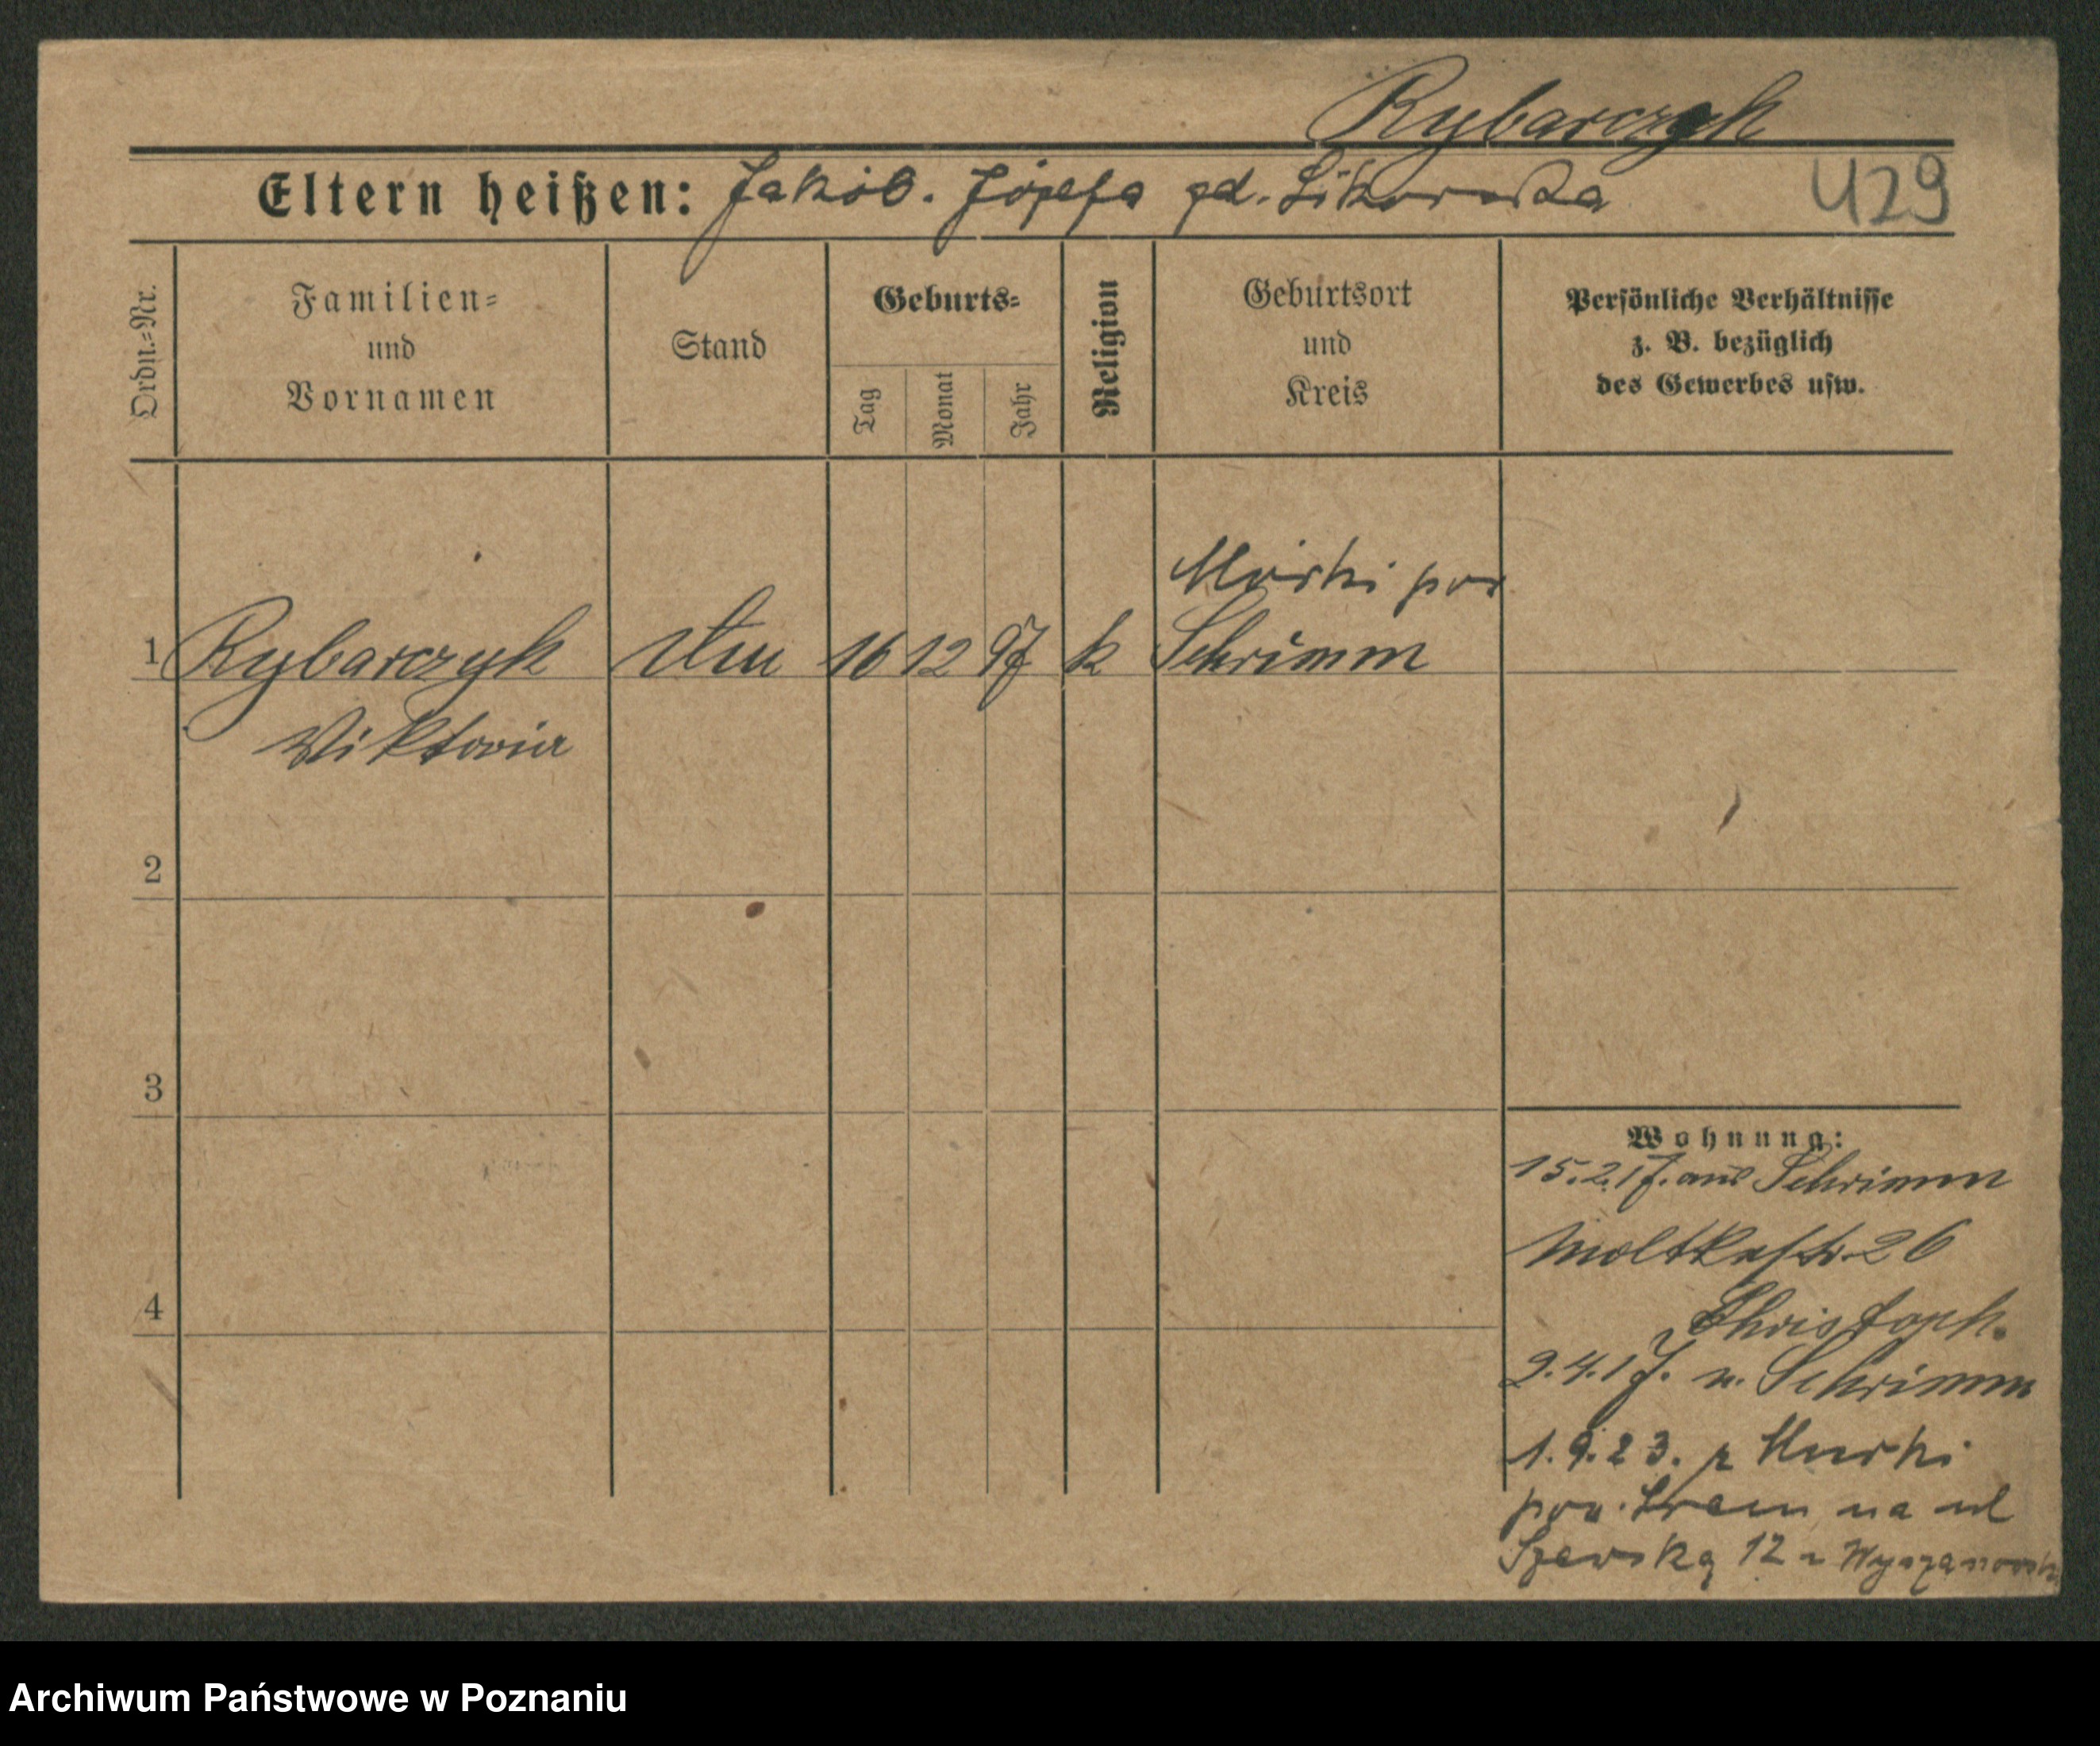 Rybarczyk
Eltern heißen: Jakób. Józefa gd. Sikorska
429
Ordn.-Nr.
Familien-
und
Vornamen
Stand
Geburts-
Tag
Monat
Jahr
Religion
Geburtsort
und
Kreis
Persönliche Verhältnisse
z. B. bezüglich
des Gewerbes usw.
pow
1 Rybarczyk 16 12 97 k Schrimm
Viktoria
2
3
4
Wohnung:
15.2.17. aus Schrimm
Moltkestr. 26
Christoph.
2.4.17. n. Schrimm
1.9.23. z
pow. Śrem na ul
Szewską 12
Archiwum Państwowe w Poznaniu